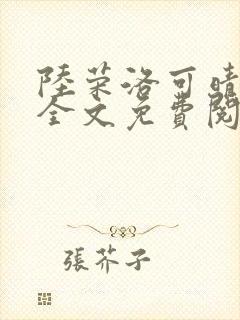 陸荣洛可晴
全文免費閱
張芥子